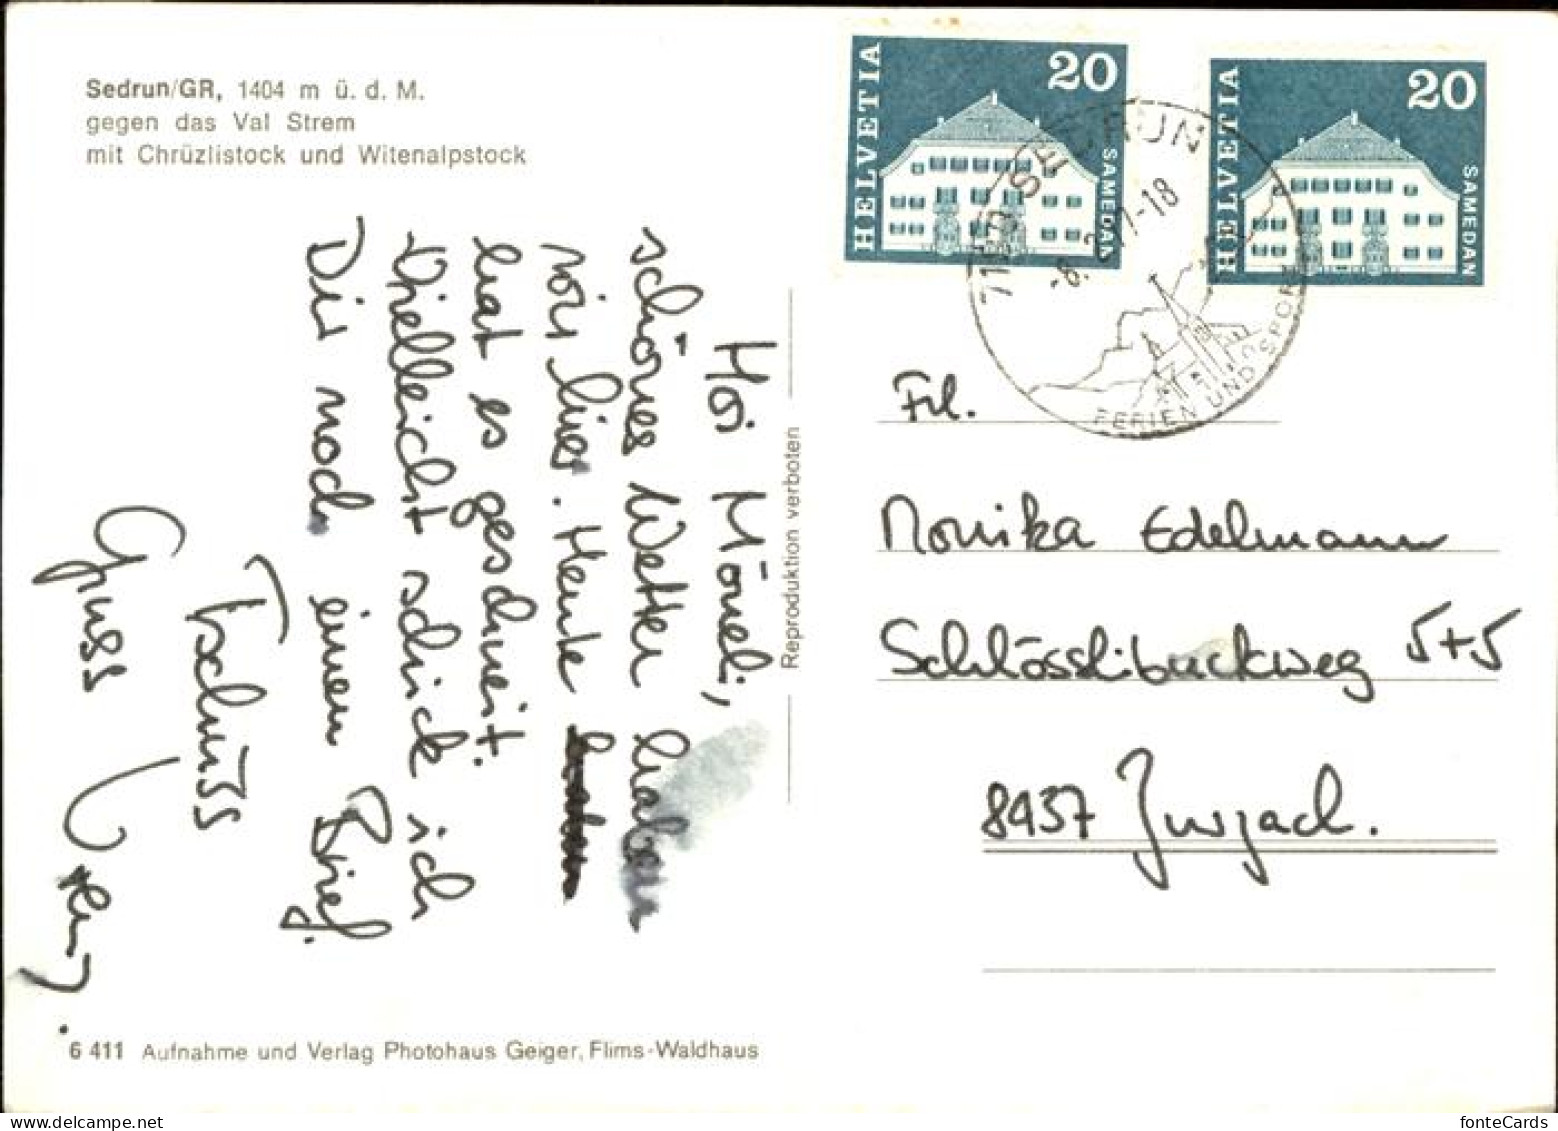 Sedrun/GR, 1404 m ü. d. M.
gegen das Val Strem
mit Chrüzlistock und Witenalpstock
Hoi Möneli,
schönes Wetter haben
wir hier. Heute
hat es geschneit.
Vielleicht schick ich
Dir noch einen Brief.
Tschüss
Gruss
Reproduktion verboten
HELVETIA
20
SAMEDAN
HELVETIA
20
SAMEDAN
SEDRUN
-18
FERIEN UND SPORT
Frl.
Monika Edelmann
Schlösslibuckweg 5+5
8437 Zurzach.
6 411 Aufnahme und Verlag Photohaus Geiger, Flims-Waldhaus
fonteCards